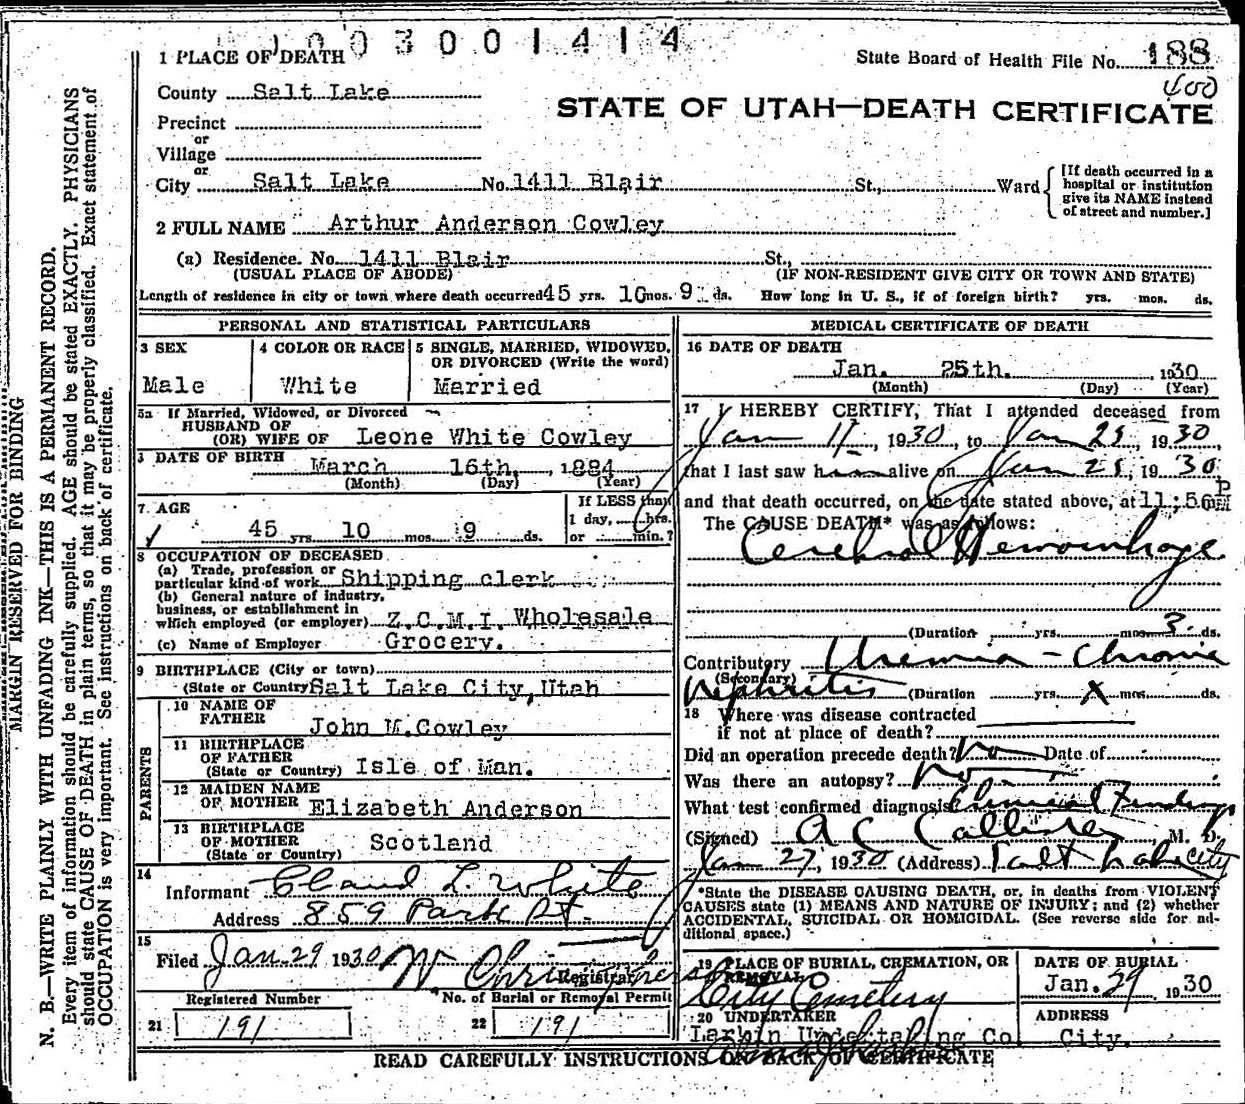 1003001414
1 PLACE OF DEATH
State Board of Health File No. 188
400
County Salt Lake
STATE OF UTAH—DEATH CERTIFICATE
Precinct
or
Village
or
City Salt Lake No. 1411 Blair St., Ward
[If death occurred in a
hospital or institution
give its NAME instead
of street and number.]
2 FULL NAME Arthur Anderson Cowley
(a) Residence. No. 1411 Blair St.,
(USUAL PLACE OF ABODE) (IF NON-RESIDENT GIVE CITY OR TOWN AND STATE)
Length of residence in city or town where death occurred 45 yrs. 10 mos. 9 ds. How long in U. S., if of foreign birth? yrs. mos. ds.
PERSONAL AND STATISTICAL PARTICULARS
3 SEX
Male
4 COLOR OR RACE
White
5 SINGLE, MARRIED, WIDOWED,
OR DIVORCED (Write the word)
Married
5a If Married, Widowed, or Divorced
HUSBAND OF
(OR) WIFE OF Leone White Cowley
DATE OF BIRTH
March 16th, 1884
(Month) (Day) (Year)
7. AGE
45 yrs. 10 mos. 9 ds.
If LESS than
1 day, hrs.
or min.?
8 OCCUPATION OF DECEASED
(a) Trade, profession or
particular kind of work Shipping clerk
(b) General nature of industry,
business, or establishment in
which employed (or employer) Z.C.M.I. Wholesale
(c) Name of Employer Grocery.
9 BIRTHPLACE (City or town)
(State or Country) Salt Lake City, Utah
PARENTS
10 NAME OF
FATHER
John M. Cowley
11 BIRTHPLACE
OF FATHER
(State or Country) Isle of Man.
12 MAIDEN NAME
OF MOTHER Elizabeth Anderson
13 BIRTHPLACE
OF MOTHER Scotland
(State or Country)
14
Informant Claud L. White
Address 859 Park St.
15
Filed Jan. 29 1930 W Christophers
Registrar
Registered Number
21 191
No. of Burial or Removal Permit
22 191
MEDICAL CERTIFICATE OF DEATH
16 DATE OF DEATH
Jan. 25th. 1930
(Month) (Day) (Year)
17 I HEREBY CERTIFY, That I attended deceased from
Jan 11, 1930, to Jan 25, 1930,
that I last saw him alive on Jan 25, 1930
and that death occurred, on the date stated above, at 11;56 P M
The CAUSE DEATH* was as follows:
Cerebral Hemorrhage
(Duration yrs. mos. 3 ds.
Contributory Uremia - Chronic
(Secondary)
Nephritis (Duration yrs. X mos. ds.
18 Where was disease contracted
if not at place of death?
Did an operation precede death? no Date of
Was there an autopsy? no
What test confirmed diagnosis Clinical Findings
(Signed) A C Callister M. D.
Jan 27, 1930 (Address) Salt Lake City
*State the DISEASE CAUSING DEATH, or, in deaths from VIOLENT
CAUSES state (1) MEANS AND NATURE OF INJURY; and (2) whether
ACCIDENTAL, SUICIDAL OR HOMICIDAL. (See reverse side for ad-
ditional space.)
19 PLACE OF BURIAL, CREMATION, OR
REMOVAL
City Cemetery
DATE OF BURIAL
Jan. 29 1930
20 UNDERTAKER
Larkin Undertaking Co
ADDRESS
City.
READ CAREFULLY INSTRUCTIONS ON BACK OF CERTIFICATE
MARGIN RESERVED FOR BINDING
N. B.—WRITE PLAINLY WITH UNFADING INK—THIS IS A PERMANENT RECORD.
Every item of information should be carefully supplied. AGE should be stated EXACTLY. PHYSICIANS
should state CAUSE OF DEATH in plain terms, so that it may be properly classified. Exact statement of
OCCUPATION is very important. See instructions on back of certificate.